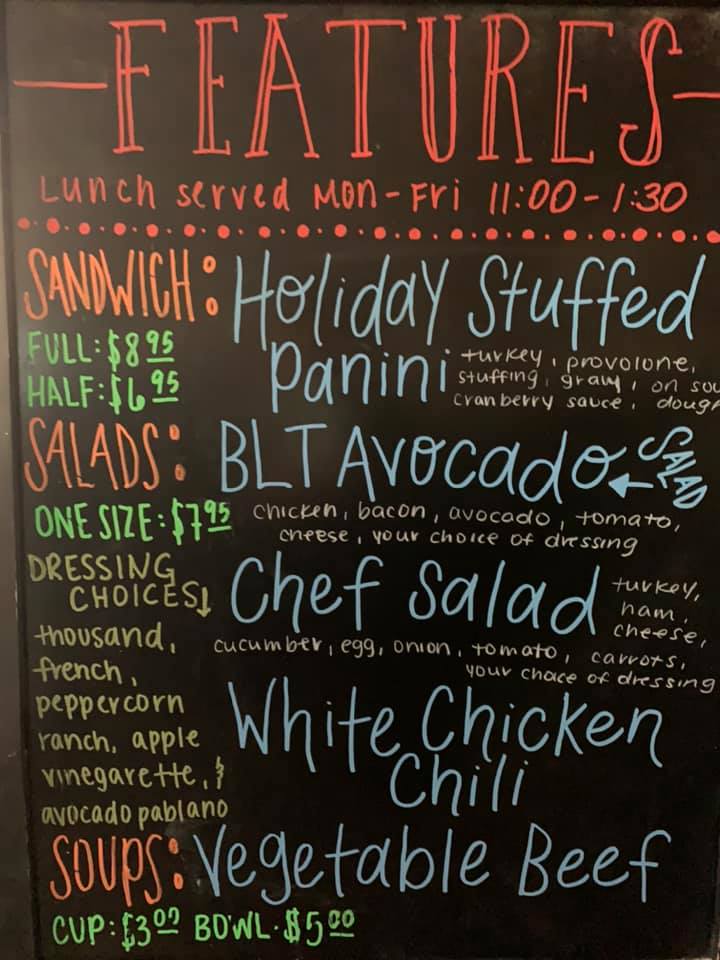 FEATURES
Lunch served Mon-Fri 11:00-1:30
SANDWICH: Holiday Stuffed
FULL: $8.95 Panini turkey, provolone,
HALF: $6.95 stuffing, gravy, on sou
cranberry sauce, dough
SALADS: BLT Avocado SALAD
ONE SIZE: $7.95 chicken, bacon, avocado, tomato,
cheese, your choice of dressing
DRESSING
CHOICES↓ Chef Salad turkey,
ham,
cheese,
thousand, cucumber, egg, onion, tomato, carrots,
french, your choice of dressing
peppercorn White Chicken
ranch, apple
vinegarette, & Chili
avocado pablano
SOUPS: Vegetable Beef
CUP: $3.00 BOWL: $5.00